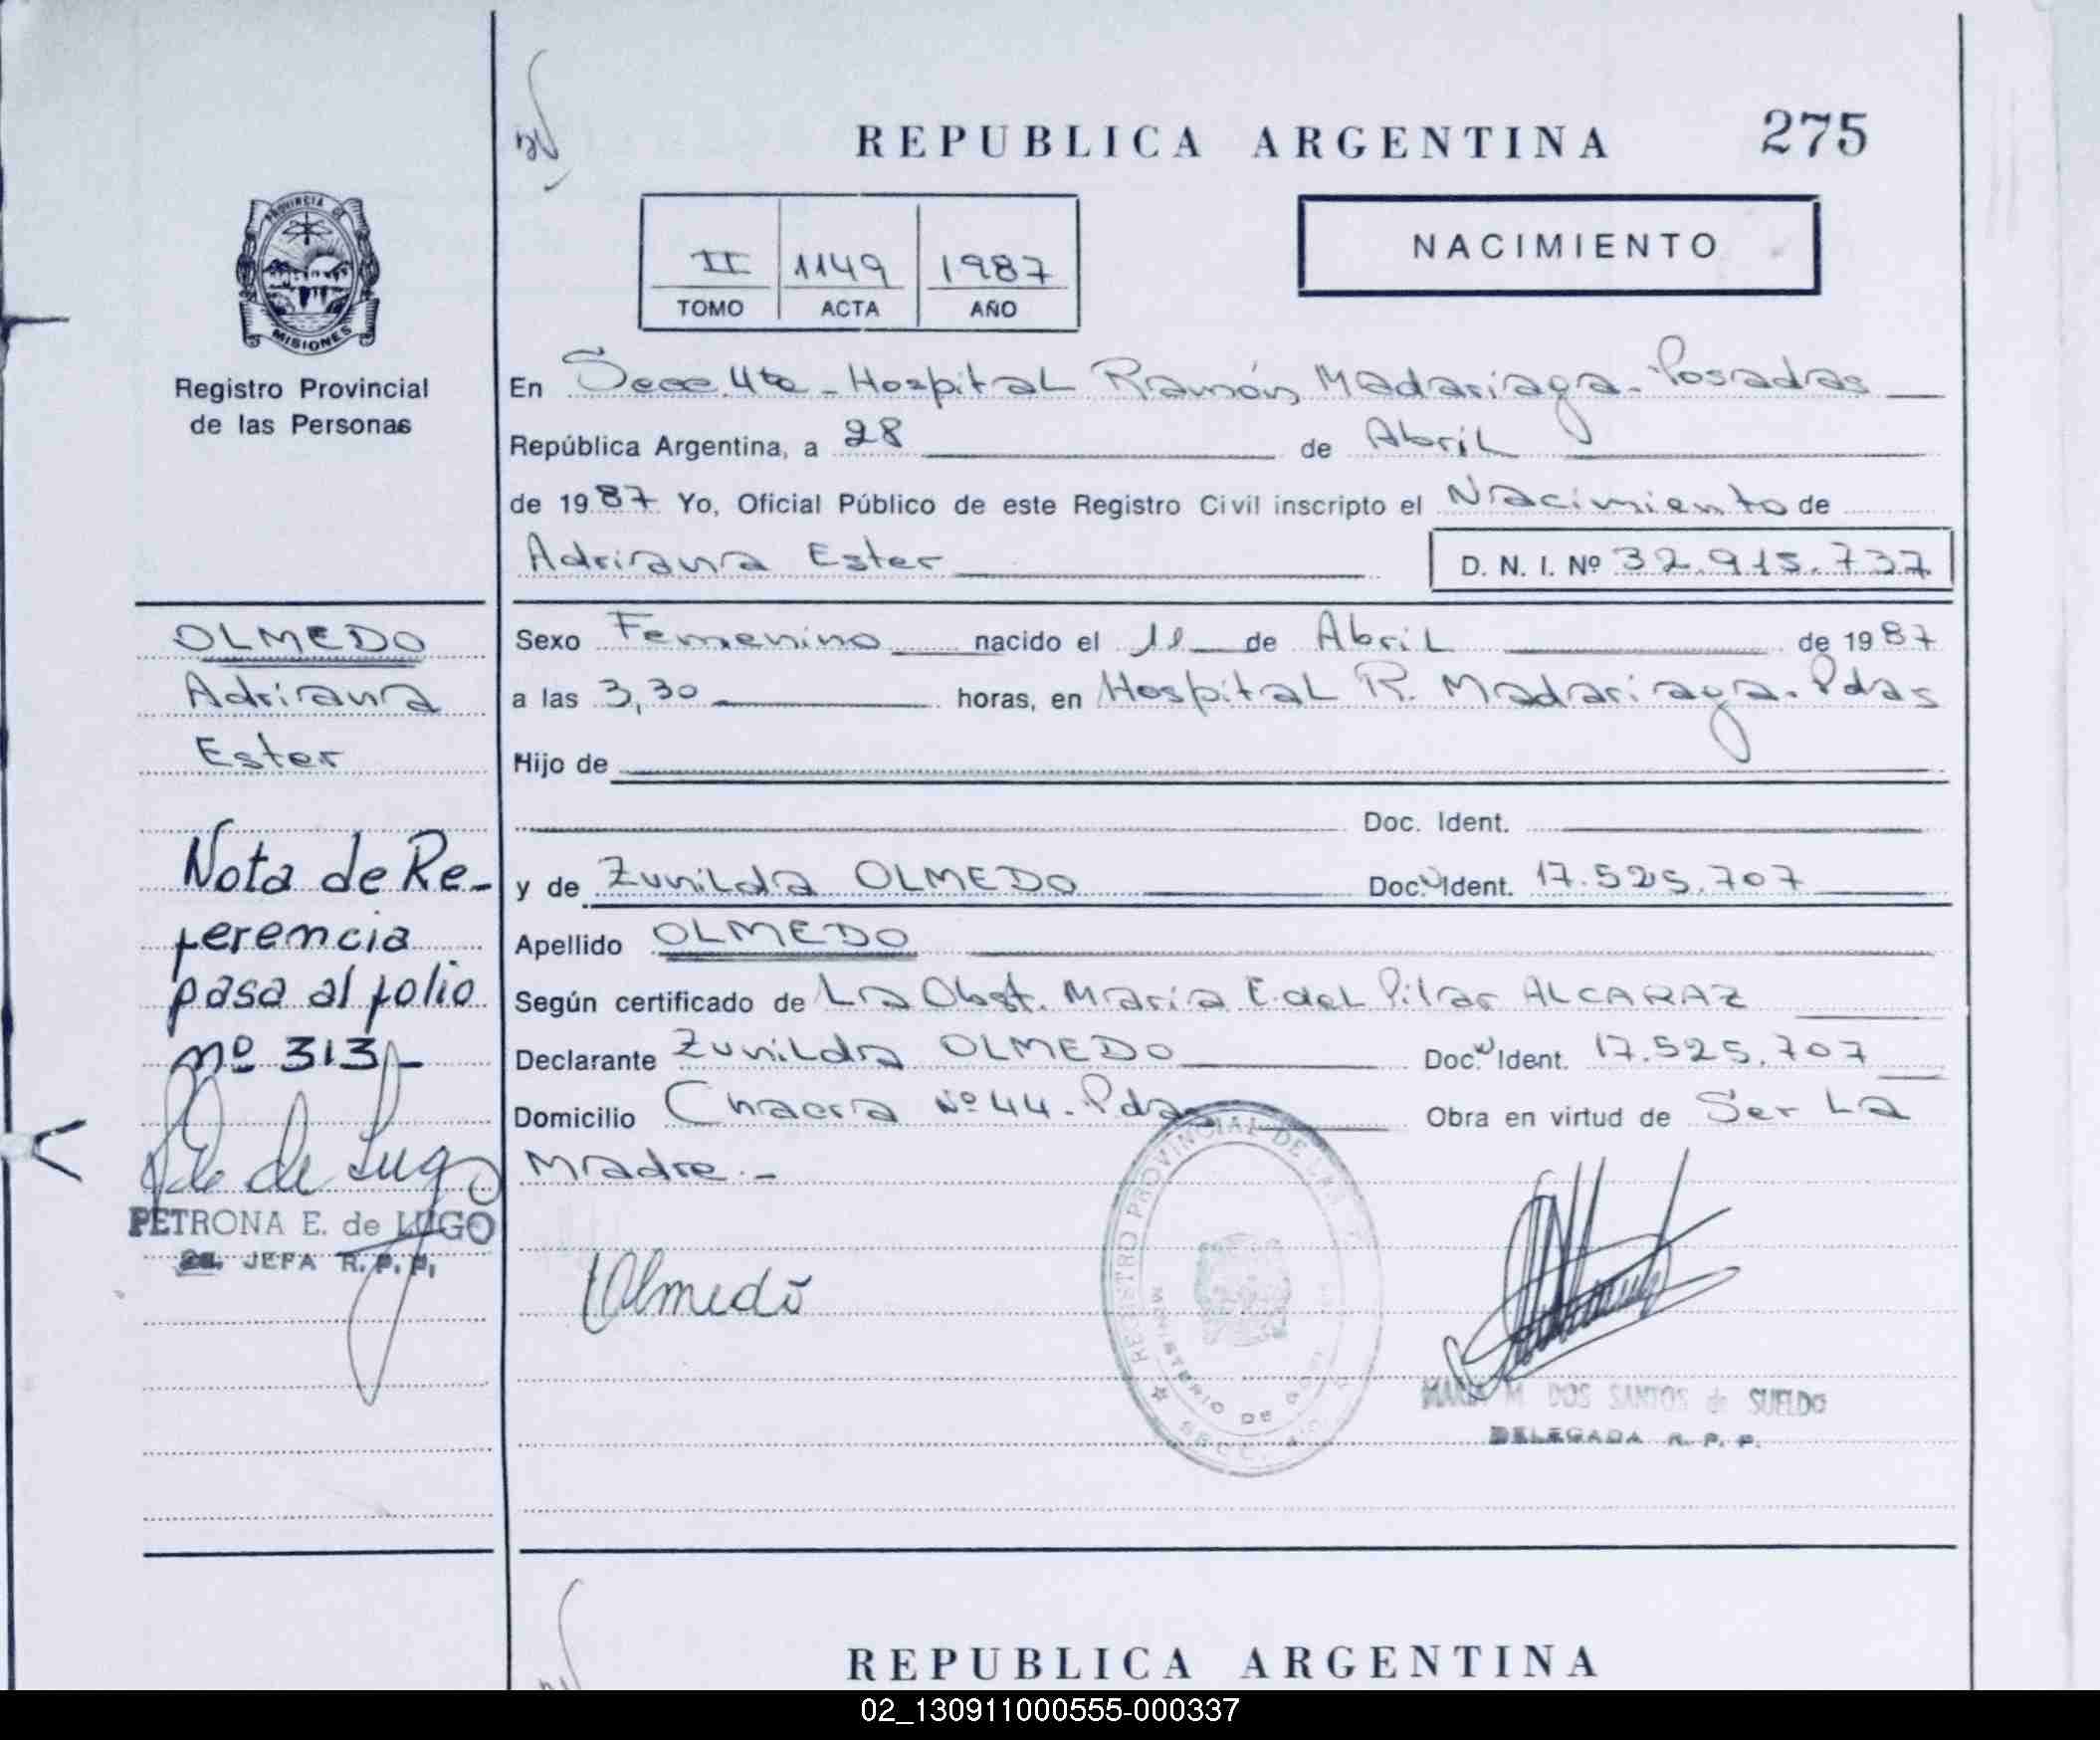 REPUBLICA ARGENTINA
275
NACIMIENTO
II 1149 1987
TOMO ACTA AÑO
PROVINCIA DE
MISIONES
Registro Provincial
de las Personas
En Secc. 4ta - Hospital Ramón Madariaga - Posadas
República Argentina, a 28 de Abril
de 1987 Yo, Oficial Público de este Registro Civil inscripto el Nacimiento de
Adriana Ester D. N. I. Nº 32.915.737
Sexo Femenino nacido el 11 de Abril de 1987
a las 3,30 horas, en Hospital R. Madariaga. Pdas
Hijo de
Doc. Ident.
y de Zunilda OLMEDO Doc. Ident. 17.525.707
Apellido OLMEDO
Según certificado de La Obst. María E. del Pilar ALCARAZ
Declarante Zunilda OLMEDO Doc. Ident. 17.525.707
Domicilio Chacra Nº 44. Pdas Obra en virtud de Ser La
Madre.-
OLMEDO
Adriana
Ester
Nota de Re-
ferencia
pasa al folio
nº 313-
PETRONA E. de LUGO
JEFA R. P. P.
Olmedo
REGISTRO PROVINCIAL DE LAS
MINISTERIO DE
MARIA M DOS SANTOS de SUELDO
DELEGADA R. P. P.
REPUBLICA ARGENTINA
02_130911000555-000337